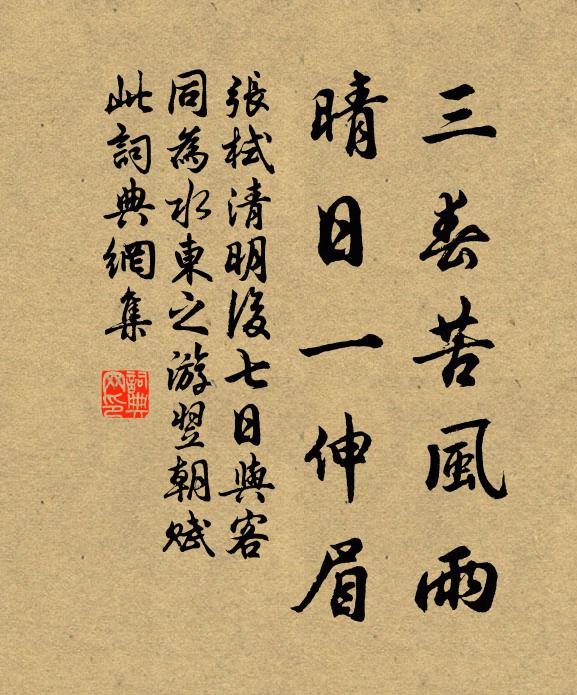 三春苦風雨
晴日一伸眉
張栻清明後七日與客
同為水東之游翌朝賦
此詞典網集
詞典
网印